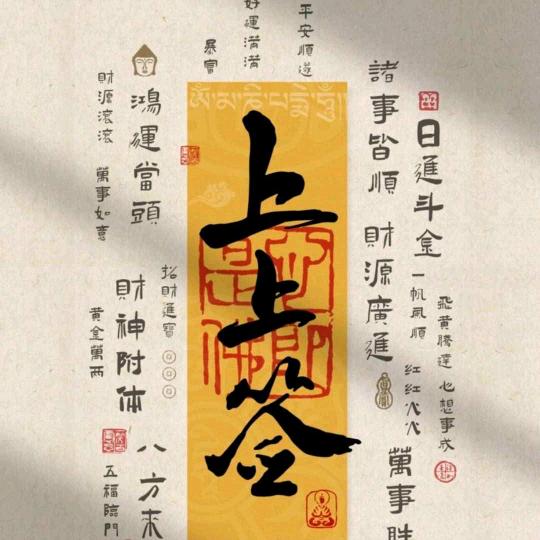 平安順遂
好運滿滿
暴富
飛黃騰達 心想事成
日進斗金
一帆風順
紅紅火火
諸事皆順 財源廣進
萬事勝
上上签
心即是佛
招財進寶
鴻運當頭
財神附体
八方來
財源滾滾 萬事如意
黃金萬兩
五福臨門